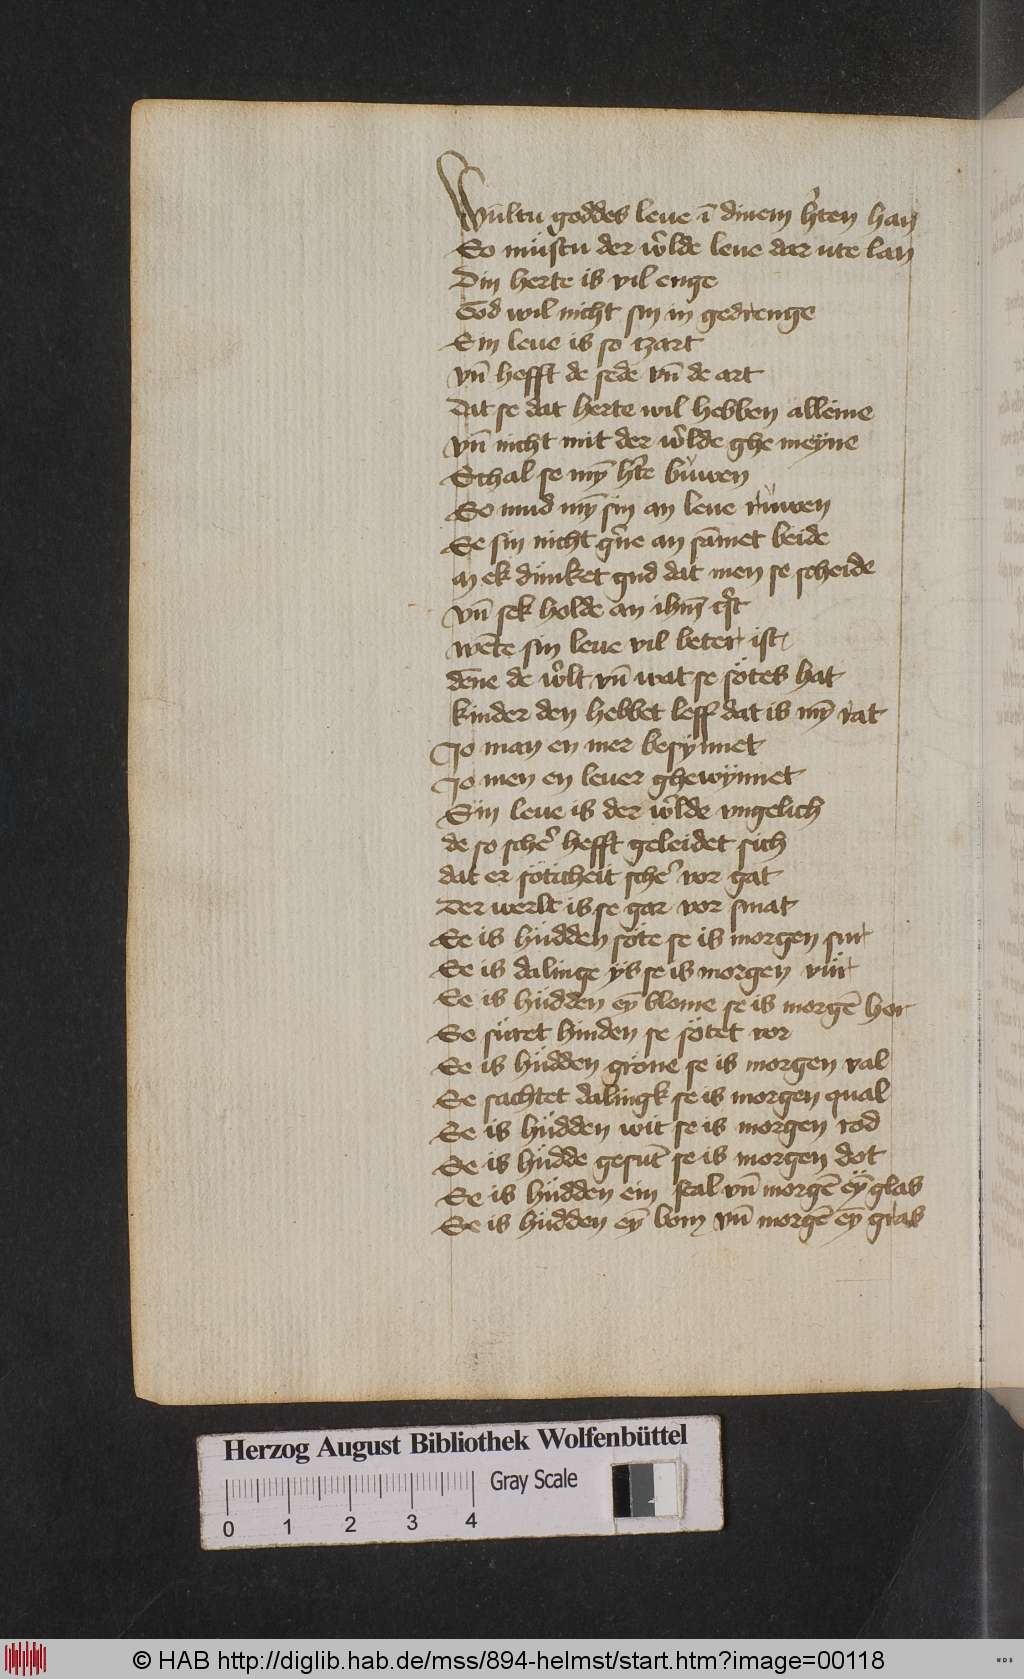 Wultu goddes leue ī dinem h̓ten han
So müstu der w̓lde leue dar ute lan
Din herte is vil enge
God wil nicht sin in gedrenge
Sin leue is so tzart
vn̄ hefft de sede vn̄ de art
Dat se dat herte wil hebben alleine
vn̄ nicht mit der w̓lde ghe meyne
Schal se mȳ h̓te bůwen
So mud mȳ sin an leue růwen
Se sin nicht g̓ne an sāmet beide
Mek dünket gud dat men se scheide
vn̄ sek holde an ihm̄ c̓st
wēte sin leue vil beter ist
dēne de w̓lt vn̄ wat se sötes hat
kinder den hebbet leff dat is mȳ rat
Jo man en mer besynnet
Jo men en leuer ghewynnet
Sin leue is der w̓lde vngelich
de so sche᷑ hefft geleidet sich
dat er söticheit sche᷑ vor gat
Der werlt is se gar vor smat
Se is hüdden söte se is morgen sur
Se is dalinge ys se is morgen vür
Se is hüdden ey̅ blome se is morgē hor
Se süret hinden se sötet vor
Se is hüdden gröne se is morgen val
Se sachtet dalingk se is morgen qual
Se is hüdden wit se is morgen rod
Se is hüdde gesūt se is morgen dot
Se is hüdden ein stal vn̄ morgē ey̅ glas
Se is hüdden ey̅ bom vn̄ morgē ey̅ gras
Herzog August Bibliothek Wolfenbüttel
Gray Scale
0 1 2 3 4
© HAB http://diglib.hab.de/mss/894-helmst/start.htm?image=00118